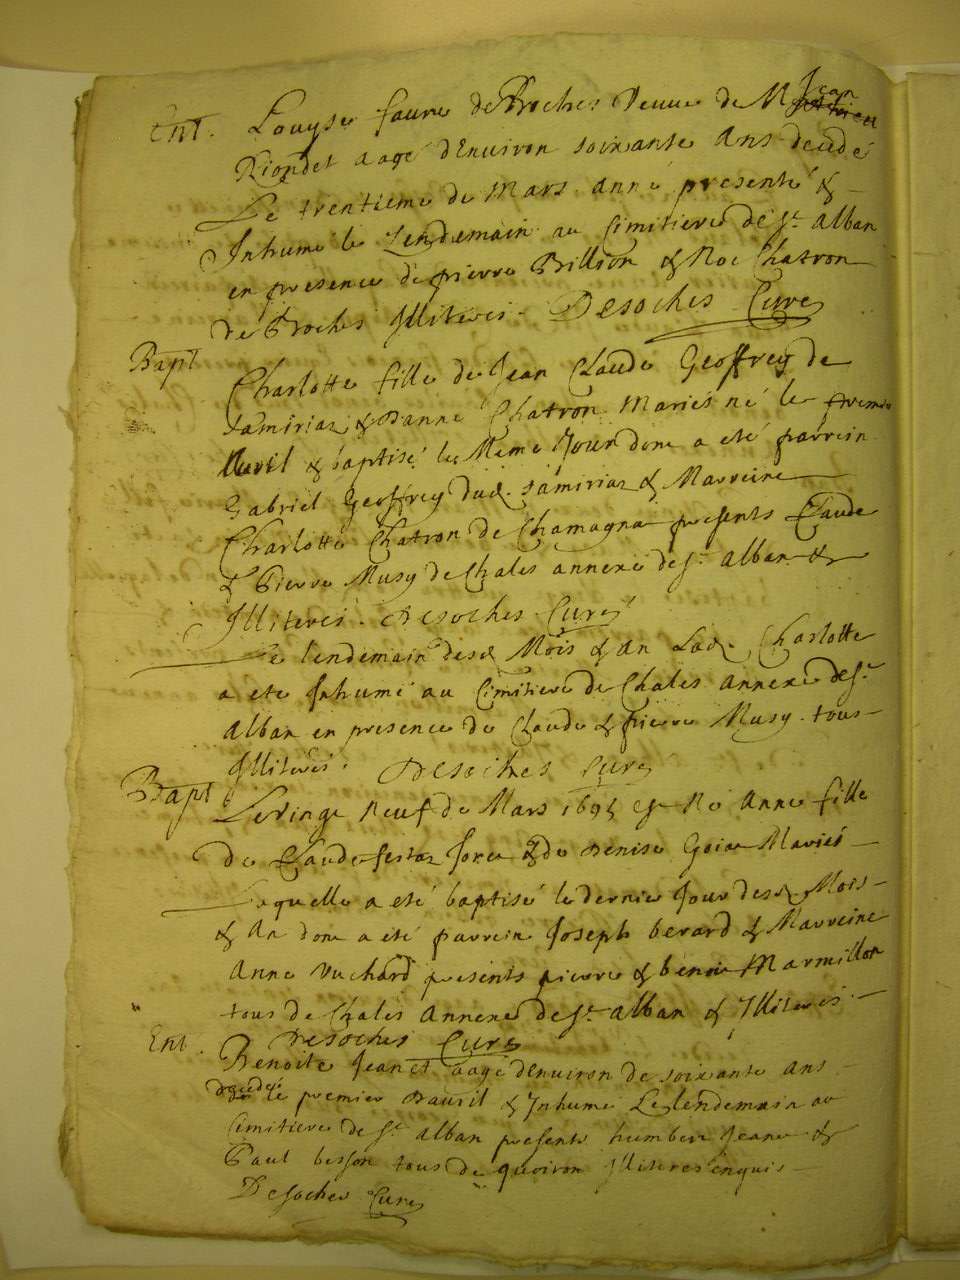 Ent. Louyse faure de Broches veuve de M Jean
Riondet aagé d'Environ soixante Ans decedé
Le trentieme de Mars année presente &
Inhumé le Lendemain au Cimitiere de St. Alban
en presence de pierre Billion & Roc Chatron
de Broches Illiteres. Desoches Curé
Bapt Charlotte fille de Jean Claude Geoffrey de
& Danne Chatron Mariés né le premie
Avril & baptisé le Meme Jour dont a eté parrein
Gabriel Geoffrey dud. & Marreine
Charlotte Chatron de Chamagna presents Claude
& Pierre Musy de Chales annexe de St. alban &
Illiteres. Desoches Curé
Le lendemain desd. Mois & An Lad. Charlotte
a eté Inhumé au Cimitiere de Chales Annexe de St.
Alban en presence de Claude & pierre Musy. tous
Illiteres. Desoches Curé
Bapt Le vingt Neuf de Mars 1695 est Né Anne fille
de Claude & de Denise Mariés
Laquelle a eté baptisé le dernier Jour desd. Mois
& An dont a eté parrein Joseph berard & Marreine
Anne vuchard presents pierre & benoit Marmillon
tous de Chales Annexe de St. alban & Illiteres.
Desoches Curé
Ent. Benoite Jeanet aagé d'Environ de soixante ans
decedé le premier Davril & Inhumé Le lendemain au
Cimitiere de St. alban presents humbert Jeanet &
Paul besson tous de quoiron Illiteres enquis
Desoches Curé